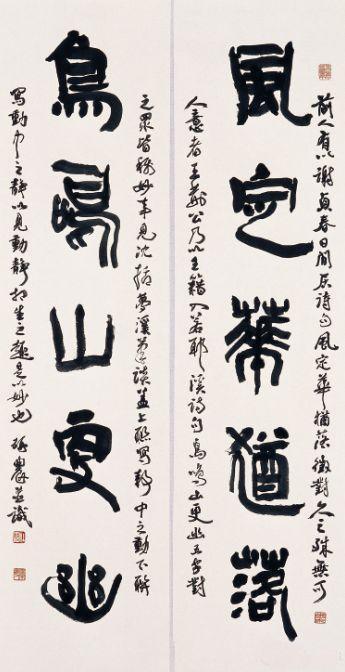 前人有以謝貞春日閒居詩句風定華猶落徵對久之殊無可
風定華猶落
人意者王荊公乃以王籍入若耶溪詩句鳥鳴山更幽五字對
之眾皆稱妙事見沈括夢溪筆談蓋上聯寫靜中之動下聯
鳥鳴山更幽
寫動中之靜以見動靜相生之趣是以妙也 農並識